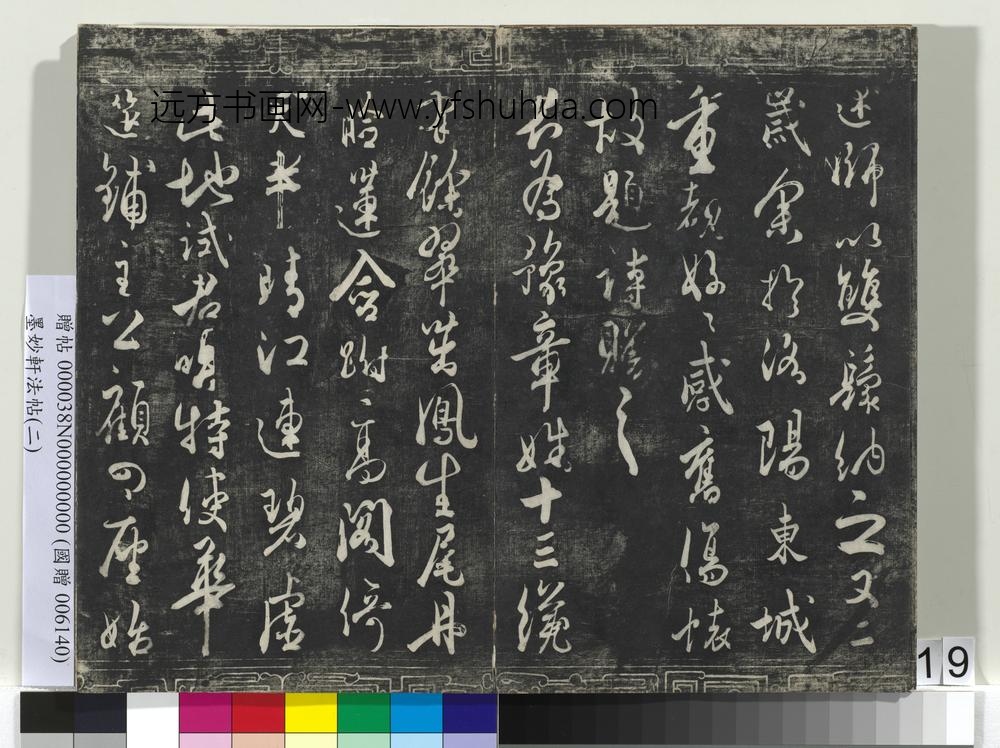 远方书画网-www.yfshuhua.com
述師以雙鬟納之又二
歲余於洛陽東城
重覩好〻感舊傷懷
故題詩贈之
君為豫章姝十三纔
有餘翠茁鳳生尾丹
臉蓮含跗高閣倚
天半晴江連碧虛
此地試君唱特使華
筵鋪主公顧四座始
贈帖 000038N000000000 (國贈 006140)
墨妙軒法帖(二)
19